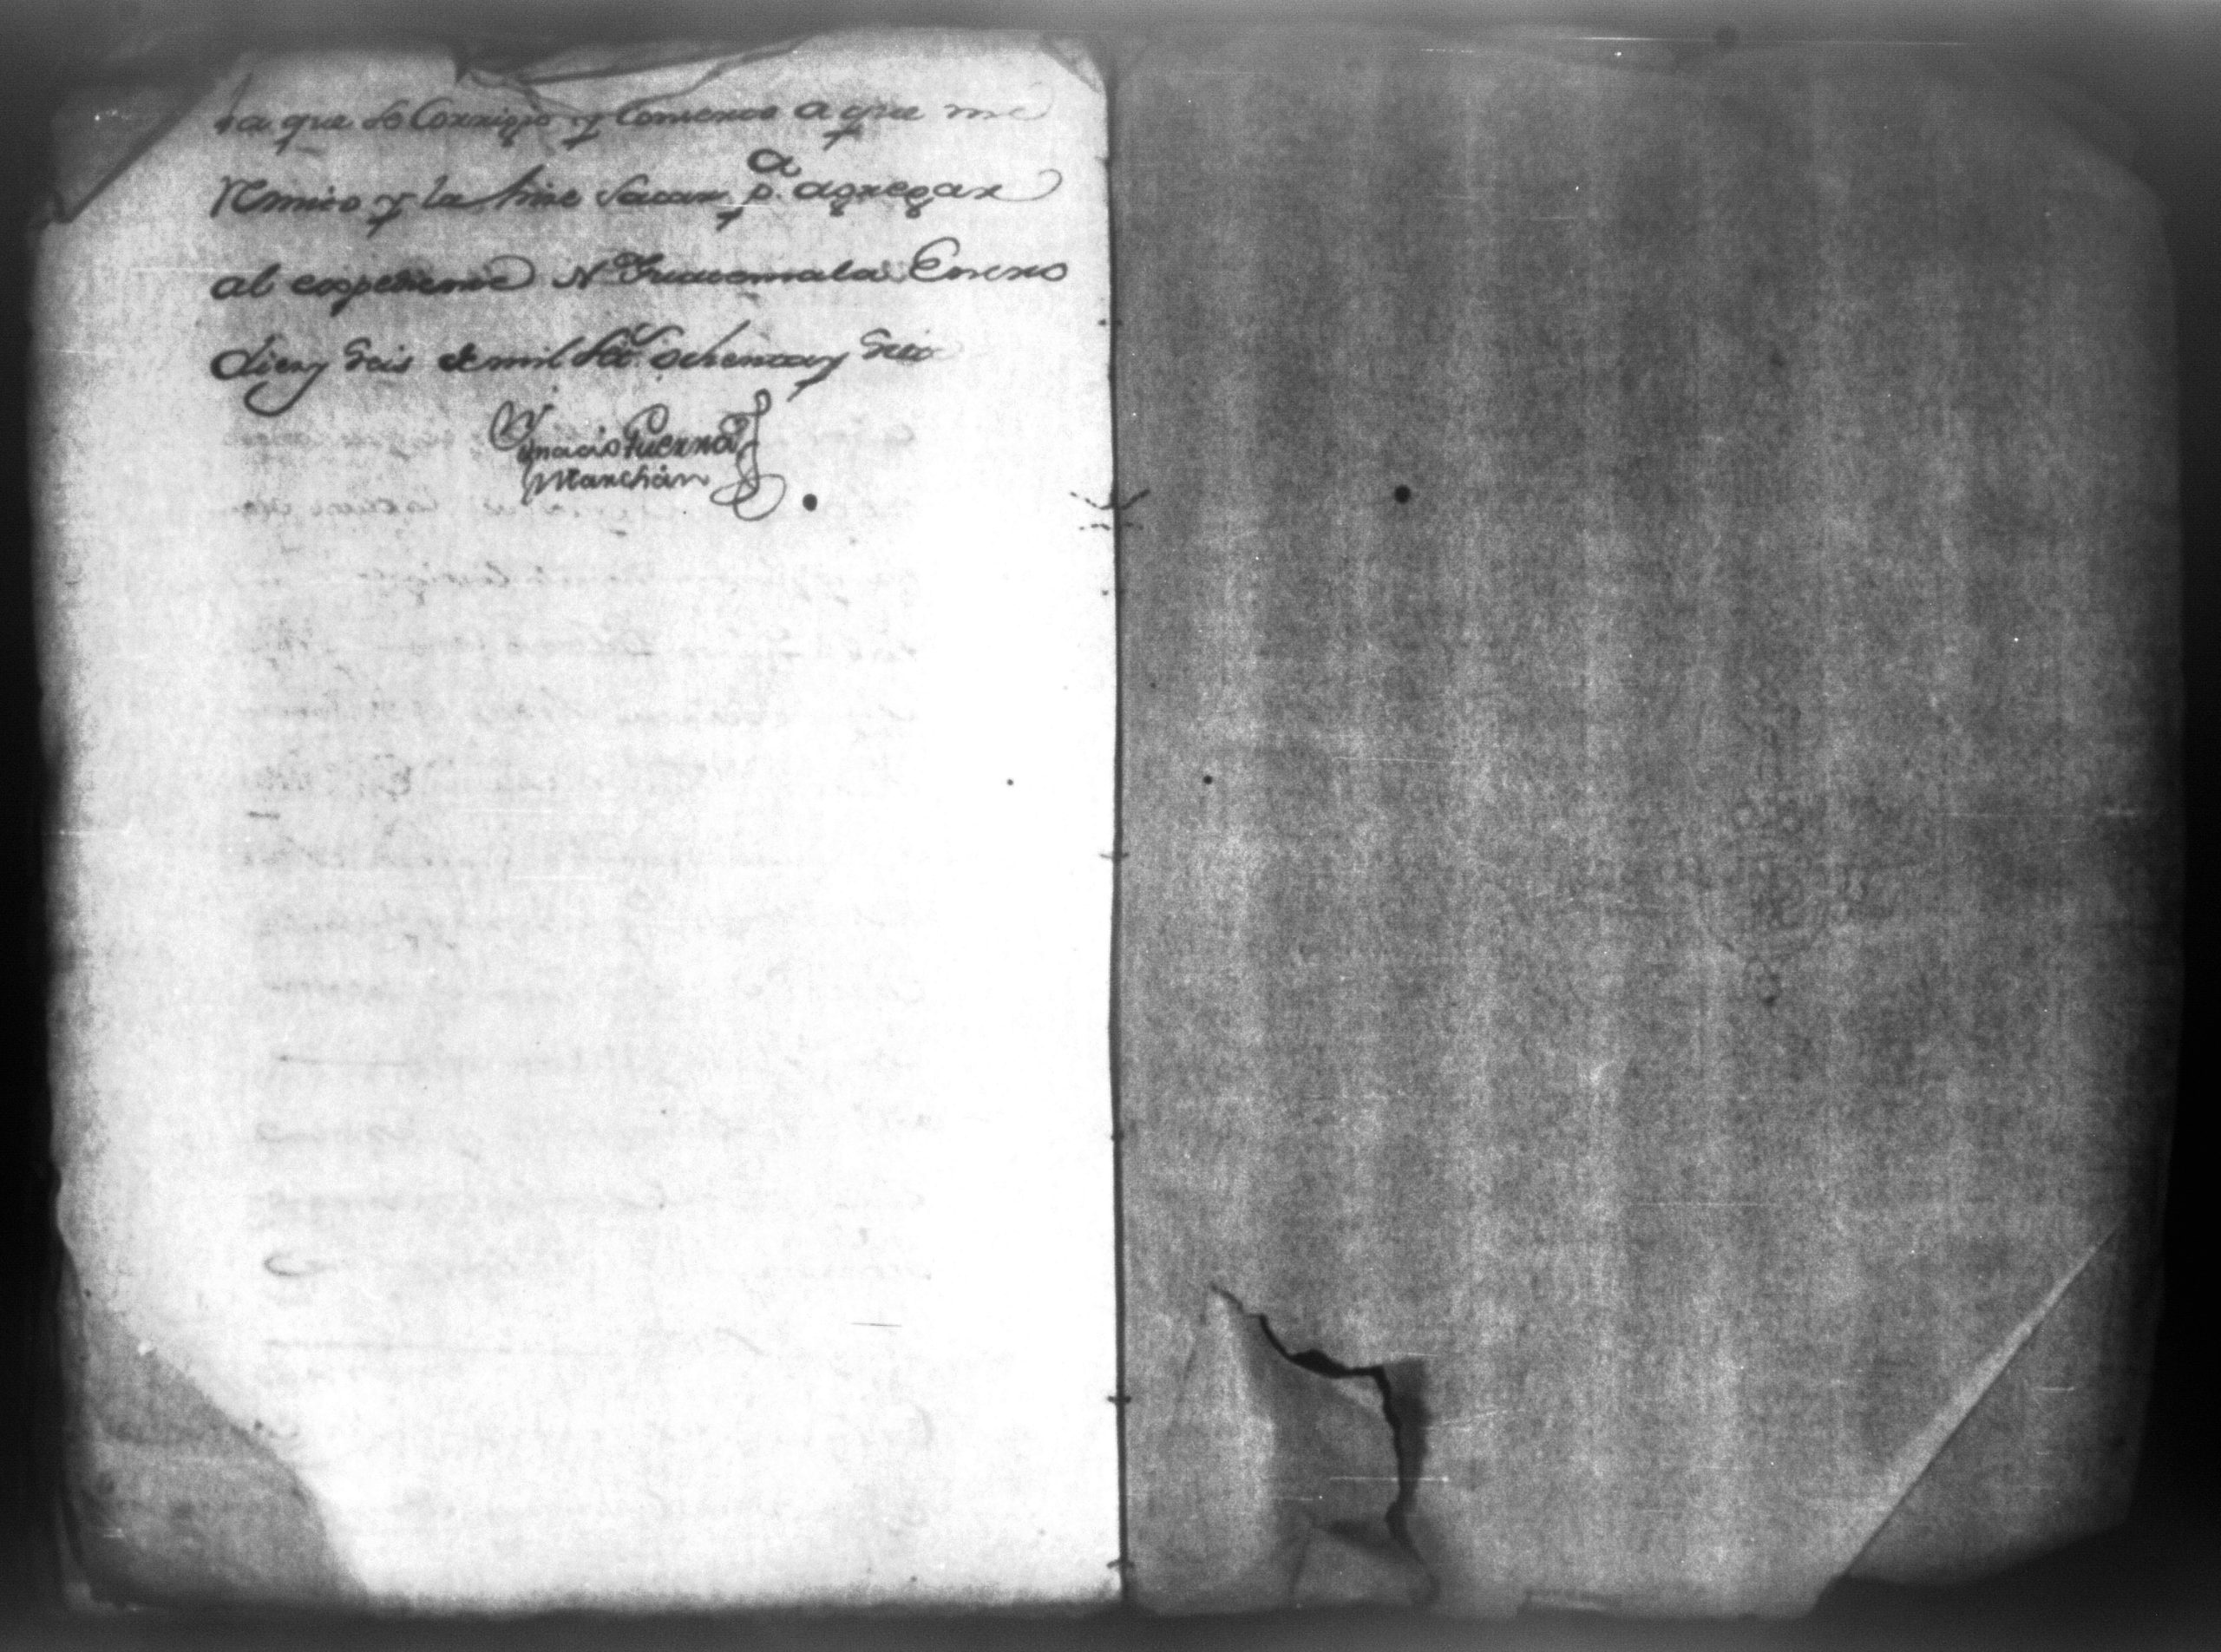 ba que se Corrigio y Concerto a que me
Remito y la hice Sacar p.a agregar
al expediente N. Guatemala Enero
diez y seis de mil Set.s ochenta y seis
Ignacio Guerra
Marchán